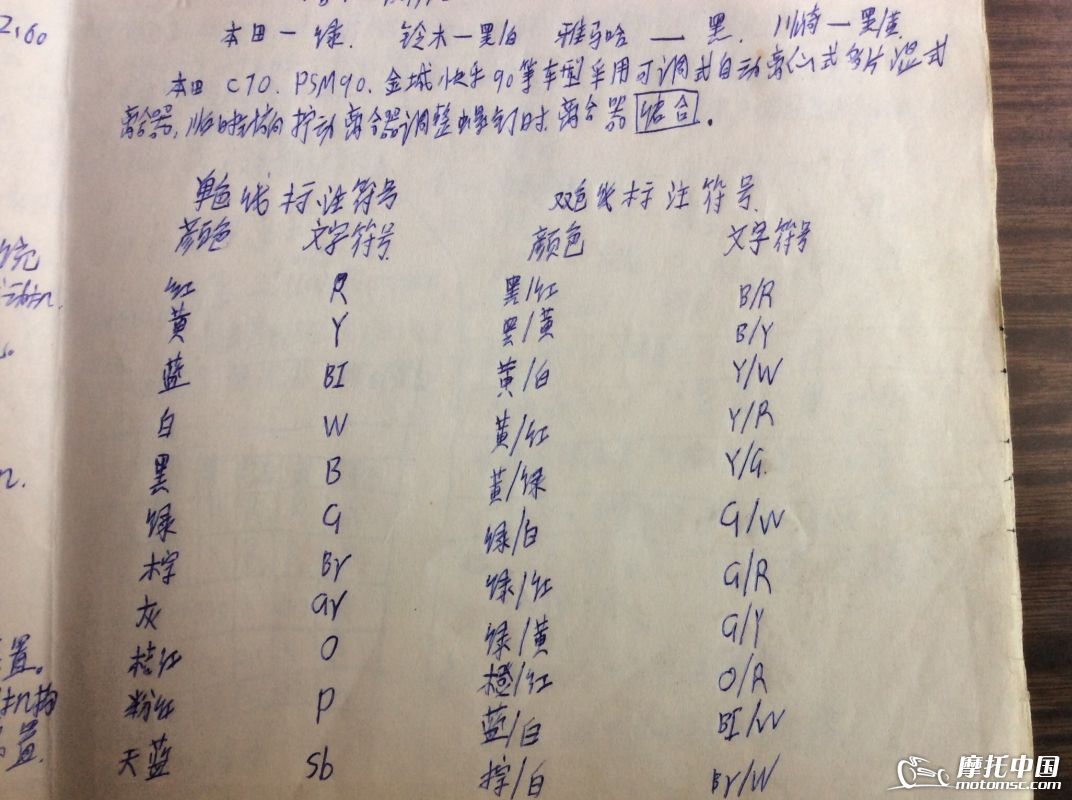 2.60
本田一绿. 铃木一黑/白 雅马哈 — 黑. 川崎一黑/黄.
本田 C70. PSM90. 金城快乐90等车型采用可调式自动离心式多片湿式
离合器, 顺时针方向拧动离合器调整螺钉时离合器 结合 。
单色线标注符号 双色线标注符号
颜色 文字符号 颜色 文字符号
红 R 黑/红 B/R
黄 Y 黑/黄 B/Y
蓝 BI 黄/白 Y/W
白 W 黄/红 Y/R
黑 B 黄/绿 Y/G
绿 G 绿/白 G/W
棕 Br 绿/红 G/R
灰 Gr 绿/黄 G/Y
桔红 O 橙/红 O/R
粉红 P 蓝/白 BI/W
天蓝 Sb 棕/白 Br/W
置。
机构
置.
摩托中国
motomsc.com